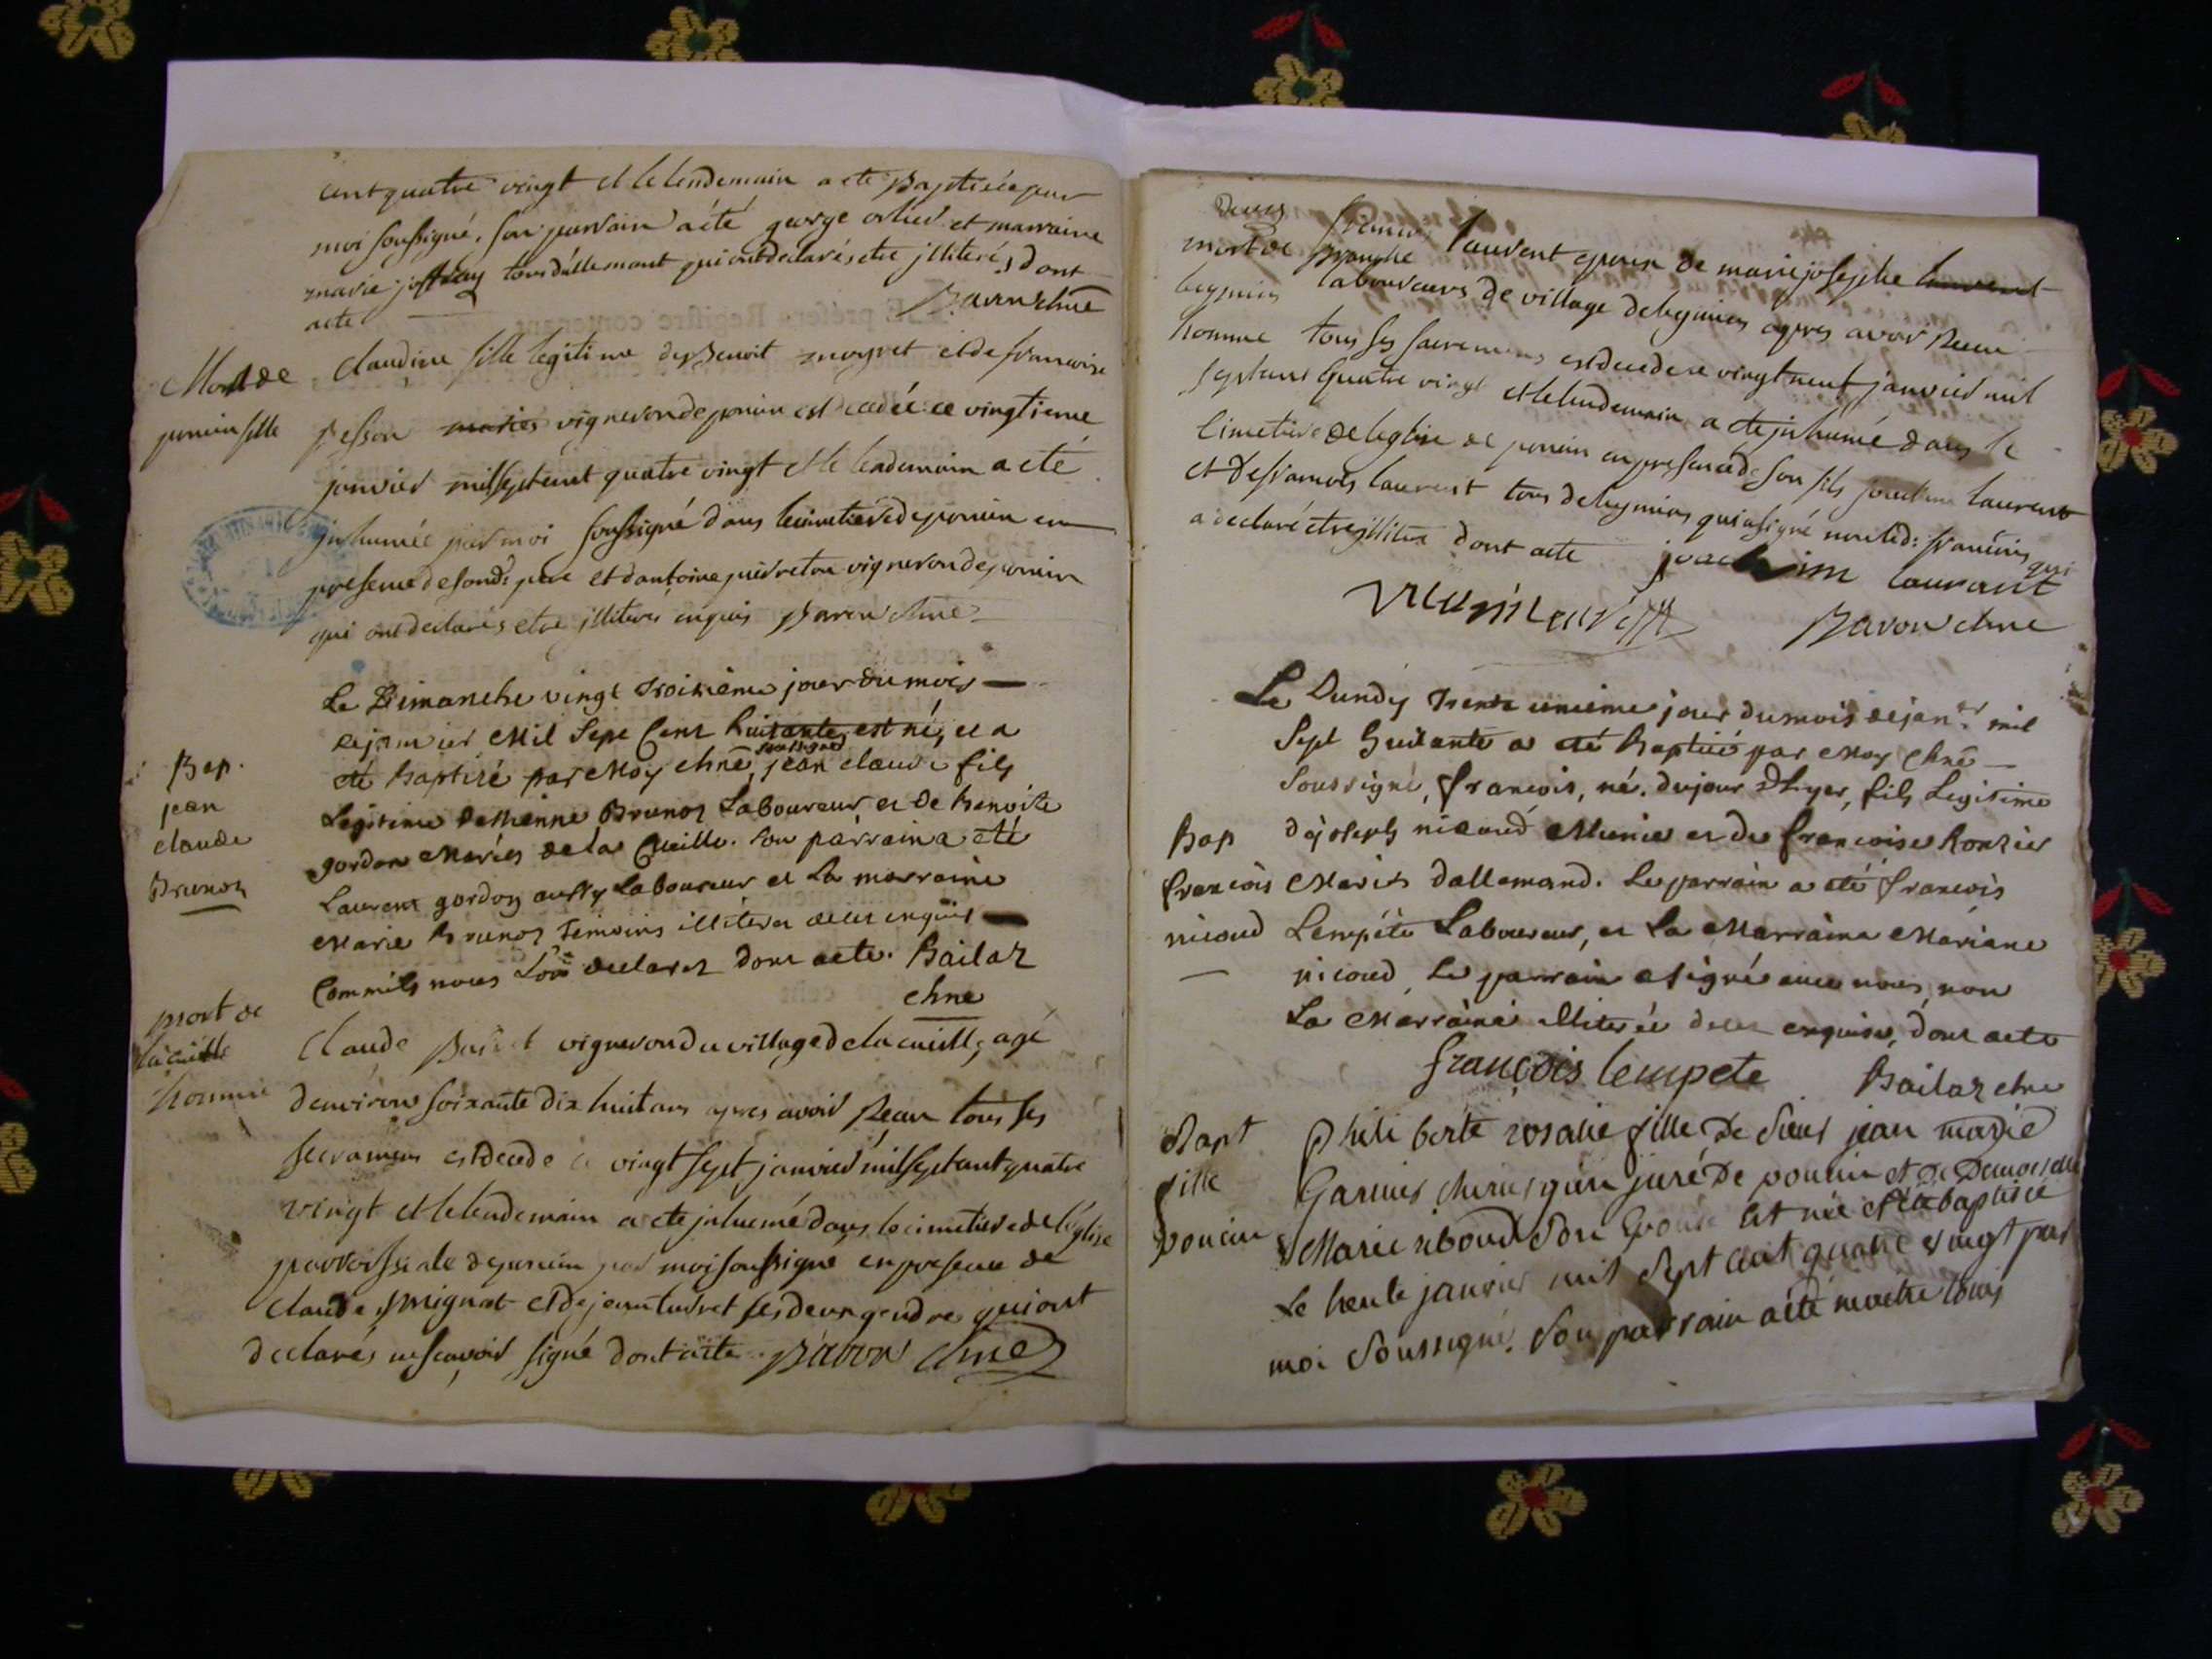 cent quatre vingt et le lendemain a eté Baptisée par
moi soussigné, son parrain a été george et marraine
marie tous d'allemant qui ont declarés etre jlliterés dont
acte Baron chne
Mort de
ponçin fille
claudine fille legitime de Benoit moyret et de francoise
pesson mariés vigneron de ponçin est decedée ce vingtieme
janvier mil sept cent quatre vingt et le lendemain a eté
jnhumée par moi soussigné dans le cimetiere de ponçin en
presence de son d: pere et d'antoine vigneron de ponçin
qui ont declarés etre jlliteres enquis Baron chne
Bap.
jean
claude
Brunot
Le Dimanche vingt troisième jour du mois
de janvier Mil Sept Cent huitante, est né, et a
été baptizé par Moy chne soussigné, jean claude fils
Legitime d'Etienne Brunot Laboureur et de benoite
gordon Mariés de la Cueille. son parrain a eté
Laurent gordon aussy Laboureur et la marraine
Marie Brunot temoins illiterés de ce enquis
Comm'ils nous l'ont declarez dont acte. Bailat
chne
mort de
la cuille
homme
Claude vigneron du village de la cuille, agé
d'environ soixante dix huit ans apres avoir Recu tous ses
sacremens est decedé ce vingt sept janvier mil sept cent quatre
vingt et le lendemain a eté jnhumé dans le cimetiere de l'église
parroissiale de ponçin par moi soussigné en presence de
claude mignot et de jean ses deux gendre qui ont
declarés ne scavoir signé dont acte. Baron chne
mort de
homme
francois laurent epoux de marie josephe laurent
laboureurs de village de leymiou apres avoir Recu
tous ses sacremens est decedé ce vingt neuf janvier mil
sept cent quatre vingt et le lendemain a eté jnhumé dans le
cimetiere de l'eglise de ponçin en presence de son fils joachim laurent
et de francois laurent tous de leymiou qui a signé non led: francois qui
a declaré etre jllitere dont acte joachim laurant
Baron chne
Bap
francois
nicoud
Le Lundy trente unieme jour du mois de janer mil
Sept huitante a eté baptizé par Moy chne
Soussigné, francois, né du jour d'hyer, fils Legitime
de joseph nicoud Munier et de francoise
Mariés d'allemand. Le parrain a eté francois
Lempéte Laboureur, et la Marraine Mariane
nicoud, Le parrain a signé avec nous, non
La Marraine illiterée de ce enquise, dont acte
françois lempete Bailat chne
Bapt
fille
poncin
Philiberte rosalie fille de sieur jean marie
Garnier chirurgien juré de poncin et de Demoiselle
Marie riboud son Epouse est née et été baptisée
Le trente janvier mil sept cent quatre vingt par
moi soussigné. son parrain a été maitre louis